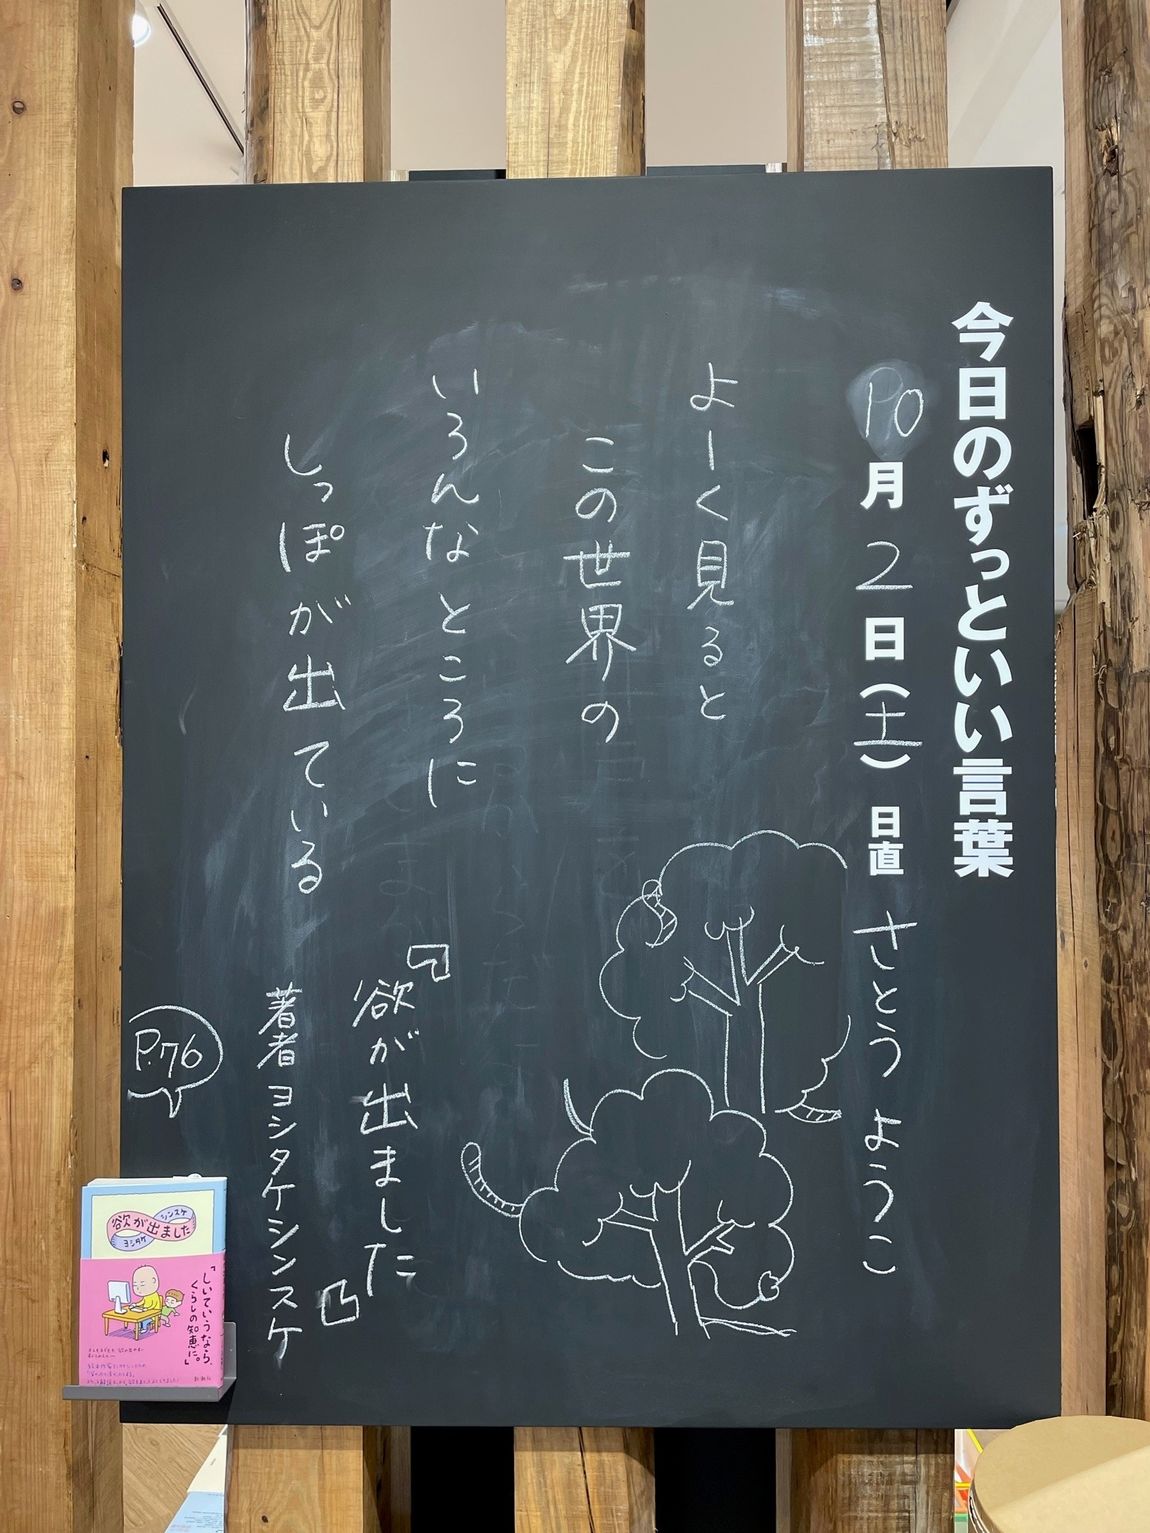 今日のずっといい言葉
10月2日(土) 日直 さとう ようこ
よーく見ると
この世界の
いろんなところに
しっぽが出ている
『欲が出ました』
著者 ヨシタケシンスケ
P.76
欲が出ました
ヨシタケ
シンスケ
「しいていうなら、
くらしの知恵に。」